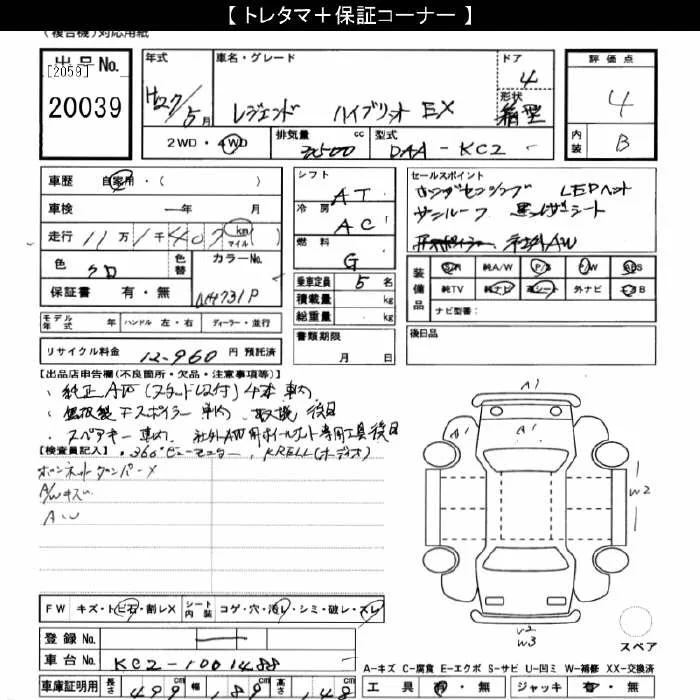 【 トレタマ＋保証コーナー 】
(複合機)対応用紙
出品No.
[2059]
20039
年式
H27/5月
車名・グレード
レジェンド ハイブリッド EX
ドア
4
形状
箱型
評価点
4
内装
B
2WD・4WD
排気量 cc
3500
型式
DAA-KC2
車歴 自家用・( )
車検 — 年 月
走行 11万1千407 km マイル ( )
色
クロ
色替
カラーNo.
NH731P
保証書 有・無
シフト
AT
冷房
AC
燃料
G
乗車定員 5名
積載量 kg
総重量 kg
セールスポイント
LEDヘッド
サンルーフ 黒レザーシート
社外AW
装備品
S/R 純A/W P/S P/W ABS
純TV 純ナビ 革シート 外ナビ エアB
ナビ型番:
モデル年式 年 ハンドル 左・右 ディーラー・並行
書類期限
月 日
後日品
リサイクル料金 12,960 円 預託済
【出品店申告欄(不良箇所・欠品・注意事項等)】
・純正AW(スタッドレス付)4本 車内
・車内 取説 後日
・スペアキー 車内 社外AW用ホイールナット専用工具後日
・360°ビューモニター、KRELL(オーディオ)
【検査員記入】
ボンネットダンパーX
A/Wキズ
A・U
A1
A1
A1
W2
V2
W3
スペア
FW キズ・トビ石・割レX
シート内装 コゲ・穴・汚レ・シミ・破レ・スレ
登録No. —
車台No. KC2-1001488
車庫証明用 長さ 499 幅 189 高さ 148
A-キズ C-腐食 E-エクボ S-サビ U-凹ミ W-補修 XX-交換済
工具 有・無 ジャッキ 有・無